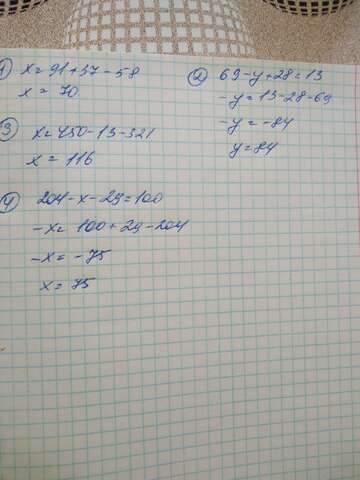 1) x = 91 + 37 - 58
x = 70
2) 69 - y + 28 = 13
-y = 13 - 28 - 69
-y = -84
y = 84
3) x = 450 - 13 - 321
x = 116
4) 204 - x - 29 = 100
-x = 100 + 29 - 204
-x = -75
x = 75